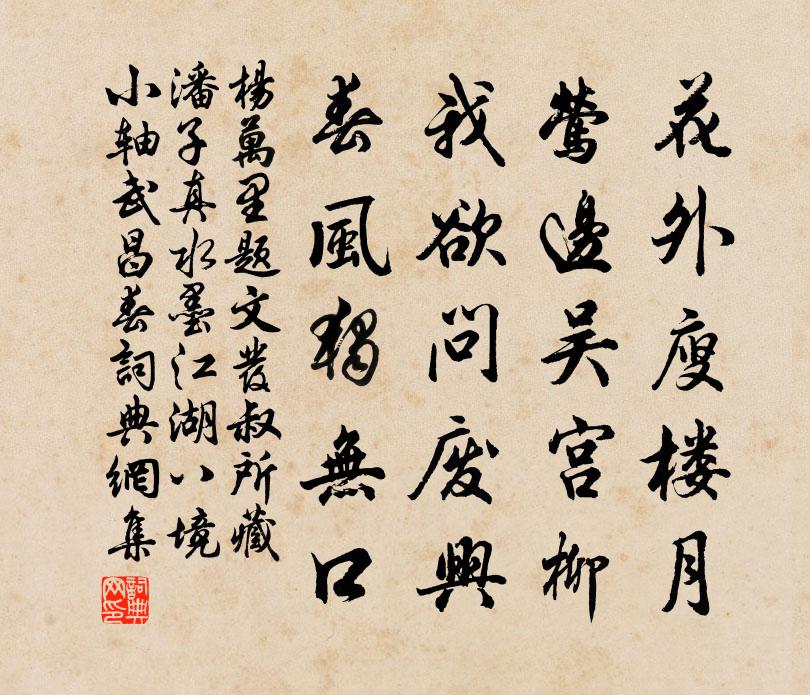 花外庾楼月
莺邊吴宫柳
我欲問废興
春風獨無口
楊萬里題文發叔所藏
潘子真水墨江湖八境
小軸武昌春詞典網集
詞典網印